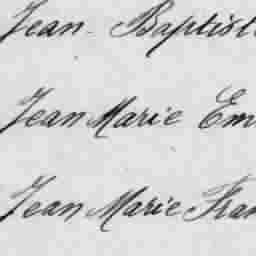 Jean-Baptist
Jean Marie Em
Jean Marie Fran